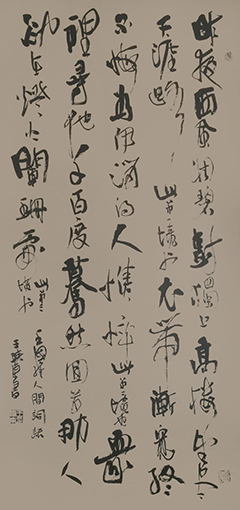 昨夜西風凋碧樹獨上高樓望盡
天涯路此第一境也衣帶漸寬終
不悔為伊消得人憔悴此第二境也眾
裡尋他千百度驀然回首那人
卻在燈火闌珊處此第三境也
王國維人間詞話